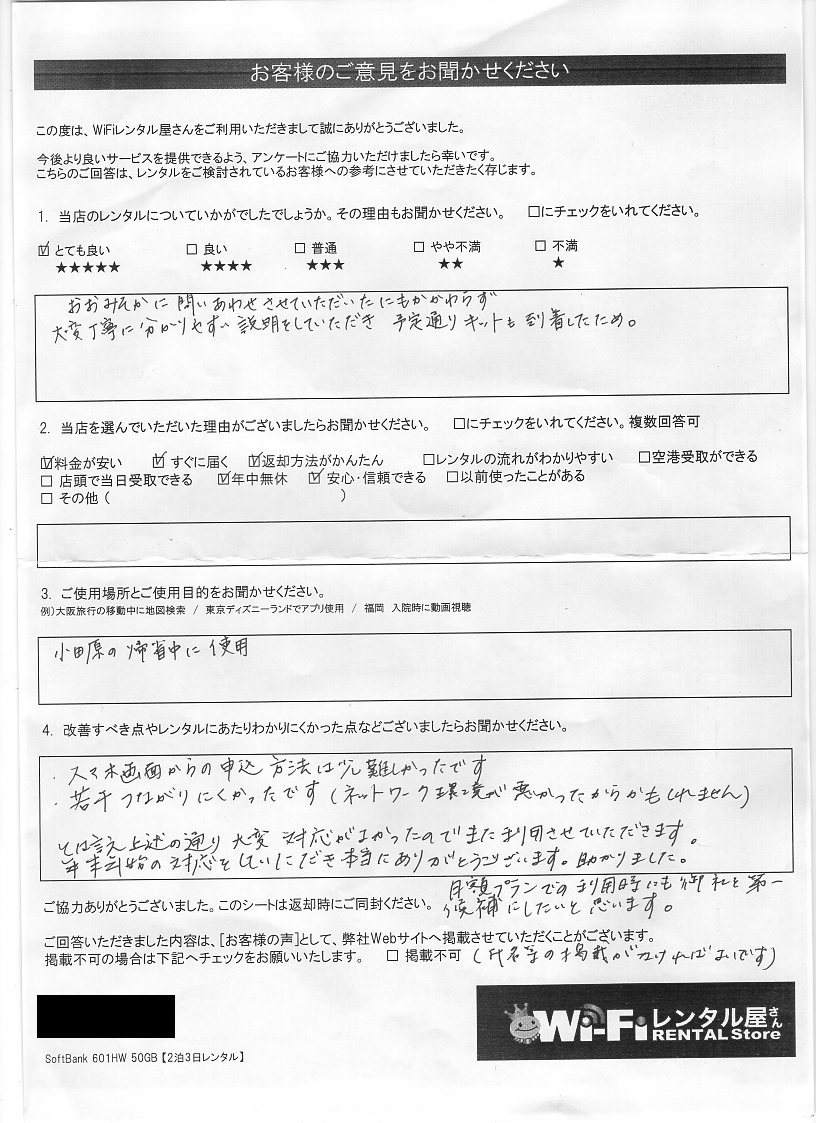 お客様のご意見をお聞かせください
この度は、WiFiレンタル屋さんをご利用いただきまして誠にありがとうございました。
今後より良いサービスを提供できるよう、アンケートにご協力いただけましたら幸いです。
こちらのご回答は、レンタルをご検討されているお客様への参考にさせていただきたく存じます。
1. 当店のレンタルについていかがでしたでしょうか。その理由もお聞かせください。 □にチェックをいれてください。
☑とても良い □ 良い □ 普通 □ やや不満 □ 不満
★★★★★ ★★★★ ★★★ ★★ ★
おおみそかに問いあわせさせていただいたにもかかわらず
大変丁寧に分かりやすい説明をしていただき 予定通りキットも到着したため。
2. 当店を選んでいただいた理由がございましたらお聞かせください。 □にチェックをいれてください。複数回答可
☑料金が安い ☑すぐに届く ☑返却方法がかんたん □レンタルの流れがわかりやすい □空港受取ができる
□ 店頭で当日受取できる ☑年中無休 ☑安心・信頼できる □以前使ったことがある
□ その他 ( )
3. ご使用場所とご使用目的をお聞かせください。
例)大阪旅行の移動中に地図検索 / 東京ディズニーランドでアプリ使用 / 福岡 入院時に動画視聴
小田原の帰省中に使用
4. 改善すべき点やレンタルにあたりわかりにくかった点などございましたらお聞かせください。
・スマホ画面からの申込方法は少し難しかったです
・若干つながりにくかったです(ネットワーク環境が悪かったからかもしれません)
とは言え上述の通り 大変 対応がよかったのでまた利用させていただきます。
年末年始の対応をしていただき本当にありがとうございます。助かりました。
月額プランでの利用時にも御社を第一
ご協力ありがとうございました。このシートは返却時にご同封ください。 候補にしたいと思います。
ご回答いただきました内容は、[お客様の声]として、弊社Webサイトへ掲載させていただくことがございます。
掲載不可の場合は下記へチェックをお願いいたします。 □ 掲載不可 (氏名等の掲載がなければよいです)
Wi-Fiレンタル屋さん
RENTAL Store
SoftBank 601HW 50GB【2泊3日レンタル】